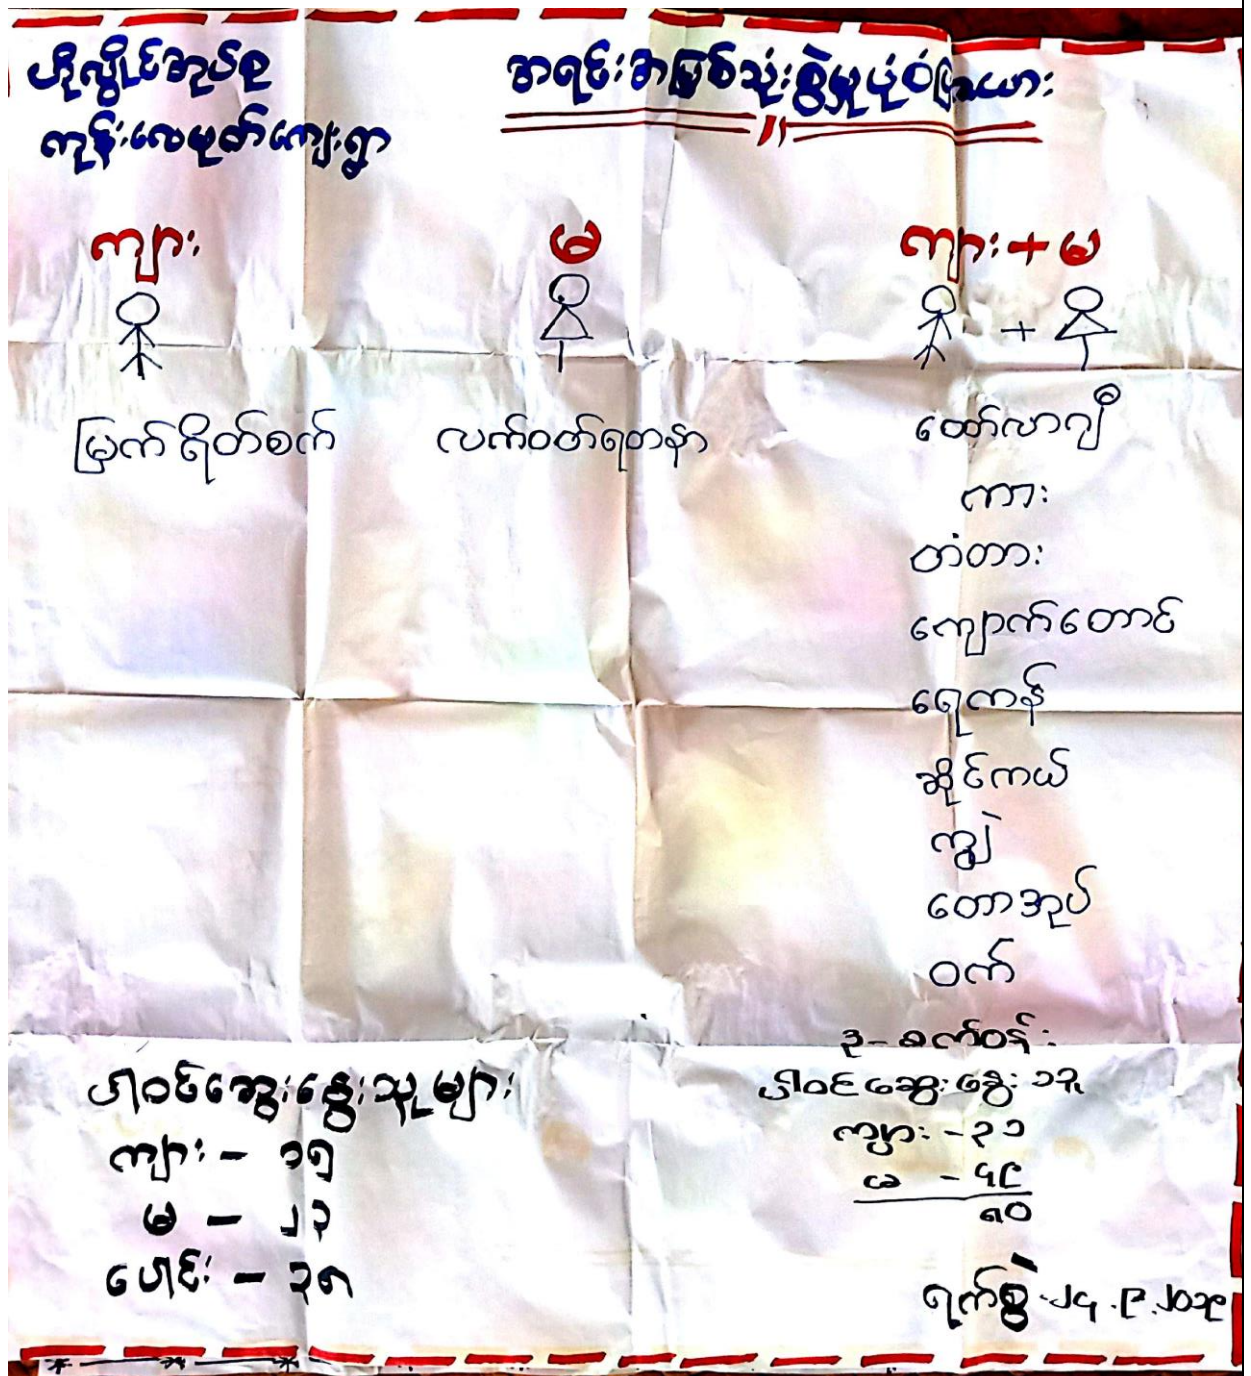 ဟိုလွိုင်အုပ်စု
ကုန်းလေမုတ်ကျေးရွာ
အရင်းအမြစ်သုံးစွဲမှုပုံစံပြဇယား
ကျား
မ
ကျား + မ
+
မြက်ရိတ်စက်
လက်ဝတ်ရတနာ
ထော်လာဂျီ
ကား
တံတား
ကျောက်တောင်
ရေကန်
ဆိုင်ကယ်
ကျွဲ
တောအုပ်
ဝက်
ပါဝင်ဆွေးနွေးသူများ
ကျား - ၁၅
မ - ၂၃
ပေါင်း - ၃၈
ပါဝင်ဆွေးနွေးသူ
ကျား - ၃၁
မ - ၄၉
၈၀
ရက်စွဲ - ၂၄.၉.၂၀၁၉